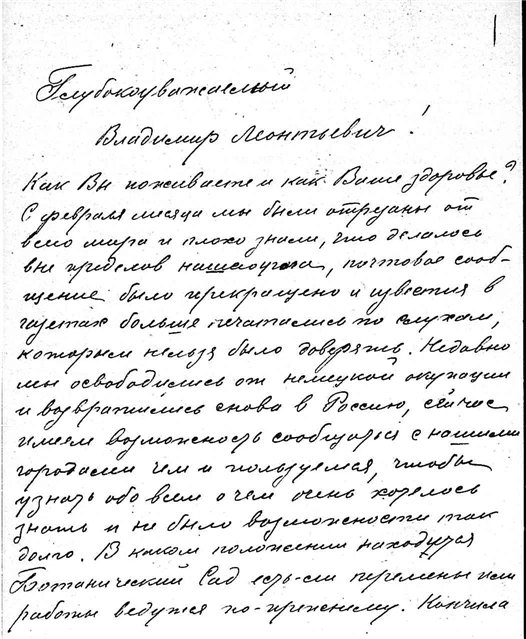 Глубокоуважаемый
Владимир Леонтьевич!
Как Вы поживаете и как Ваше здоровье?
С февраля месяца мы были отрезаны от
всего мира и плохо знали, что делалось
вне пределов нашего угла, почтовое сооб-
щение было прекращено и известия в
газетах больше печатались по слухам,
которым нельзя было доверять. Недавно
мы освободились от немецкой окупации
и возвратились снова в Россию, сейчас
имеем возможность сообщаться с нашими
городами чем и пользуемся, чтобы
узнать обо всем о чем очень хотелось
знать и не было возможности так
долго. В каком положении находится
Ботанический Сад есть-ли перемены или
работы ведутся по-прежнему. Кончила